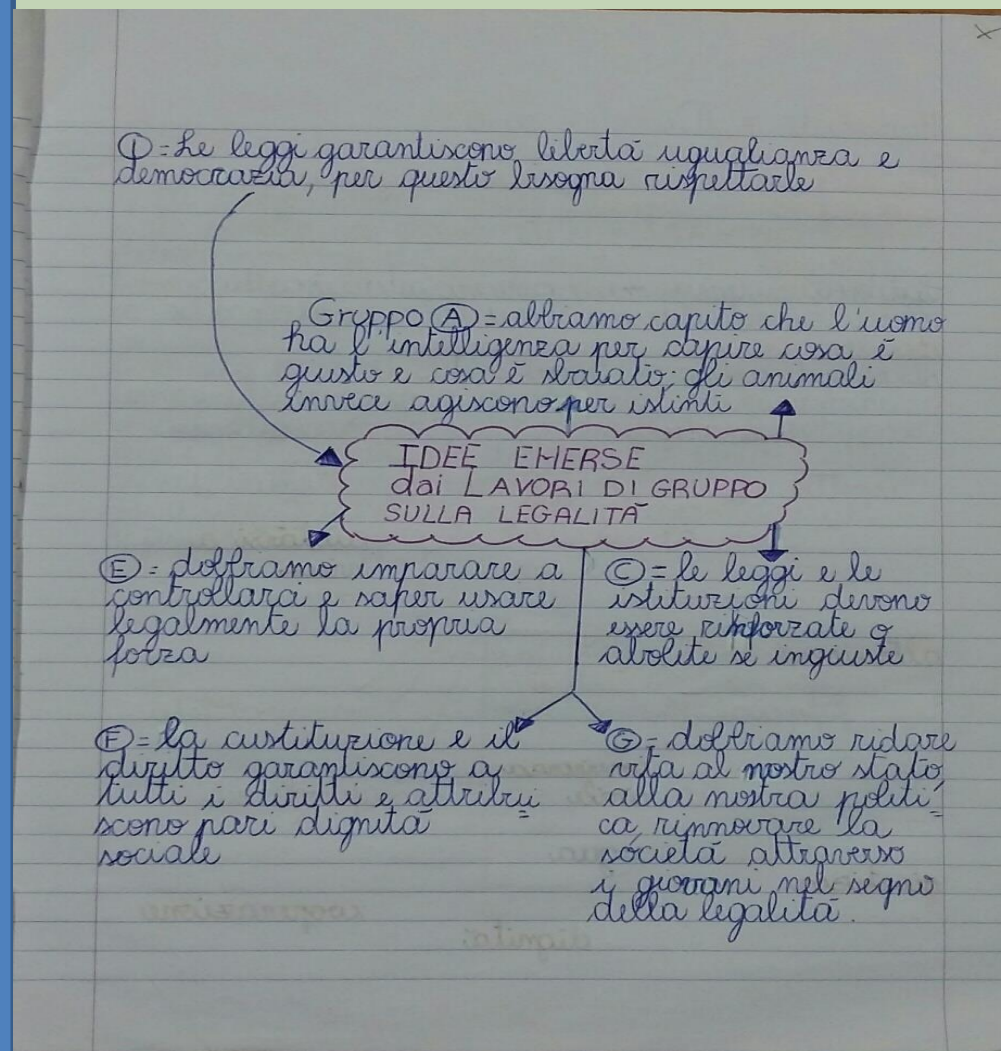 I = Le leggi garantiscono libertà uguaglianza e
democrazia, per questo bisogna rispettarle
Gruppo A = abbiamo capito che l'uomo
ha l'intelligenza per capire cosa è
giusto e cosa è sbaiato; gli animali
invece agiscono per istinti
IDEE EMERSE
dai LAVORI DI GRUPPO
SULLA LEGALITÀ
E = dobbiamo imparare a
controllarci e saper usare
legalmente la propria
forza
C = le leggi e le
istituzioni devono
essere rinforzate o
abolite se ingiuste
F = la custituzione e il
diritto garantiscono a
tutti i diritti e attribui=
scono pari dignità
sociale
G = dobbiamo ridare
vita al nostro stato,
alla nostra politi=
ca, rinnovare la
società attraverso
i giovani nel segno
della legalità.